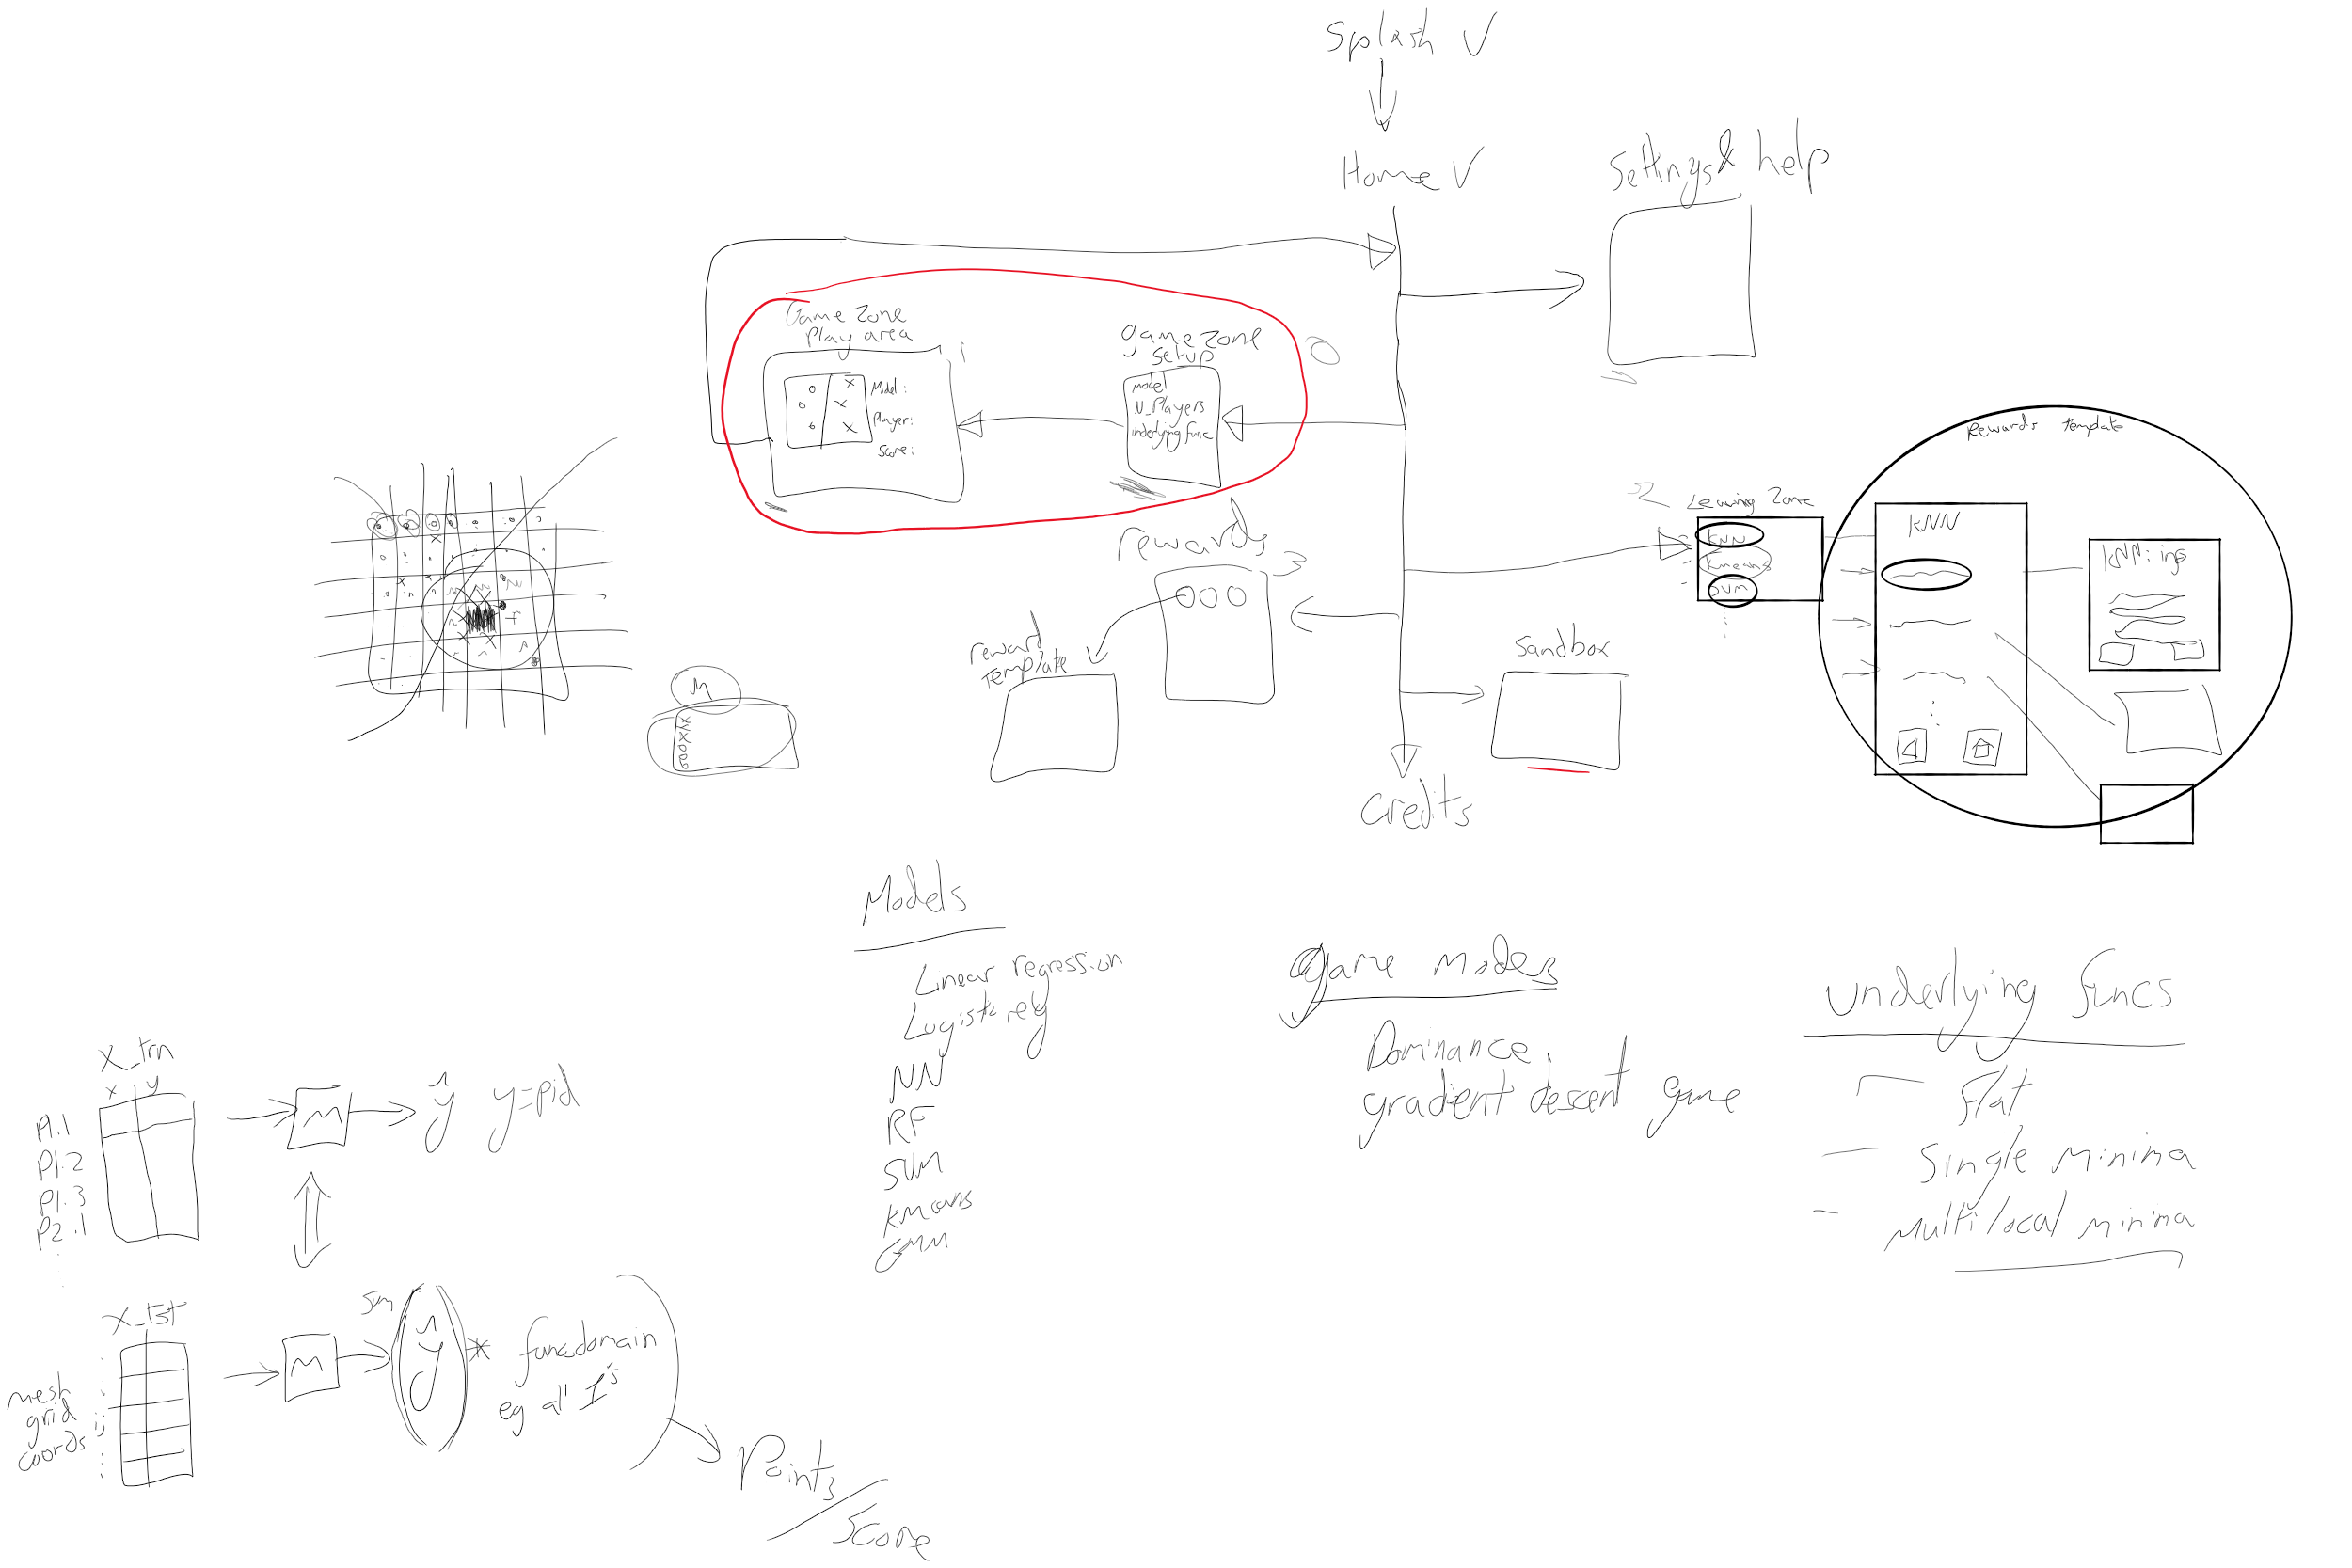 Splash
Home
Settings & help
Game Zone
Play area
Model:
Player:
Score:
game zone
setup
model
N_Players
underlying func
rewards
3
reward
template
2
Learning Zone
KNN
Kmeans
SVM
Rewards template
KNN
KNN: ing
sandbox
Credits
M
X
Y
X
O
O
O
Models
Linear regression
Logistic reg
NN
RF
SVM
Kmeans
GMM
game modes
Dominance
gradient descent game
underlying funcs
- flat
- Single minima
- Multi local minima
X_trn
x y
P1.1
P1.2
P1.3
P2.1
M
ŷ y=pid
X_tst
mesh
grid
coords
ij
M
sum
ŷ * func domain
eg all 1's
Points
/ Score